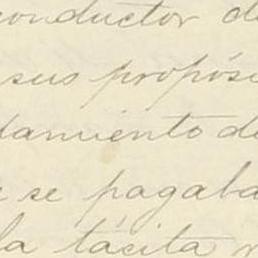 conductor de
sus propósi
damiento de
e se pagaba
la tácita r